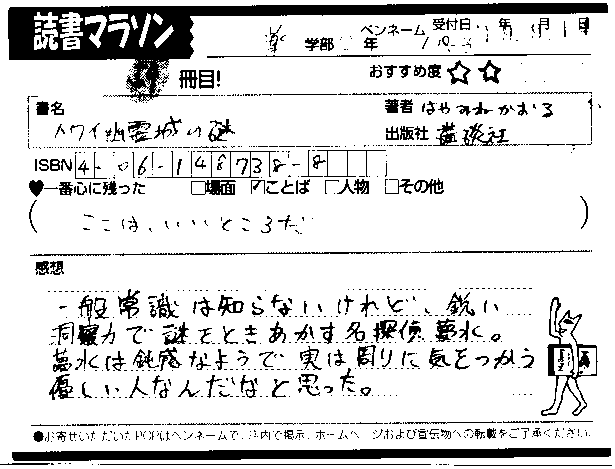 読書マラソン
学部 年 ペンネーム 受付日 年 月 日
冊目! おすすめ度☆☆
書名 著者 はやみねかおる
ハワイ幽霊城の謎 出版社 講談社
ISBN 4-06-148738-8
♥一番心に残った □場面 ☑ことば □人物 □その他
(ここは、いいところだ)
感想
一般常識は知らないけれど、鋭い
洞察力で謎をときあかす名探偵夢水。
夢水は鈍感なようで実は周りに気をつかう
優しい人なんだなと思った。
●お寄せいただいたPOPはペンネームで、店内で掲示、ホームページおよび宣伝物への転載をご了承ください。